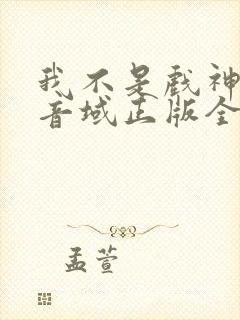 我不是戏神
音域正版全
孟萱